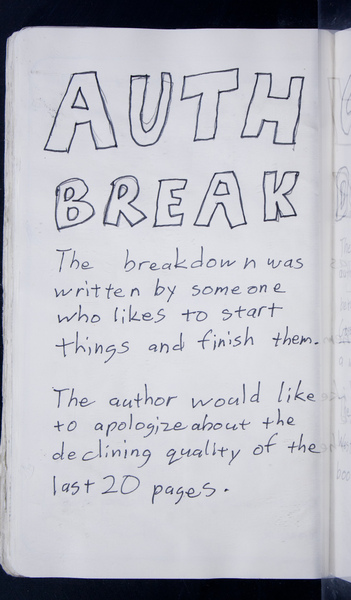 AUTH
BREAK
The breakdown was
written by someone
who likes to start
things and finish them.
The author would like
to apologize about the
declining quality of the
last 20 pages.